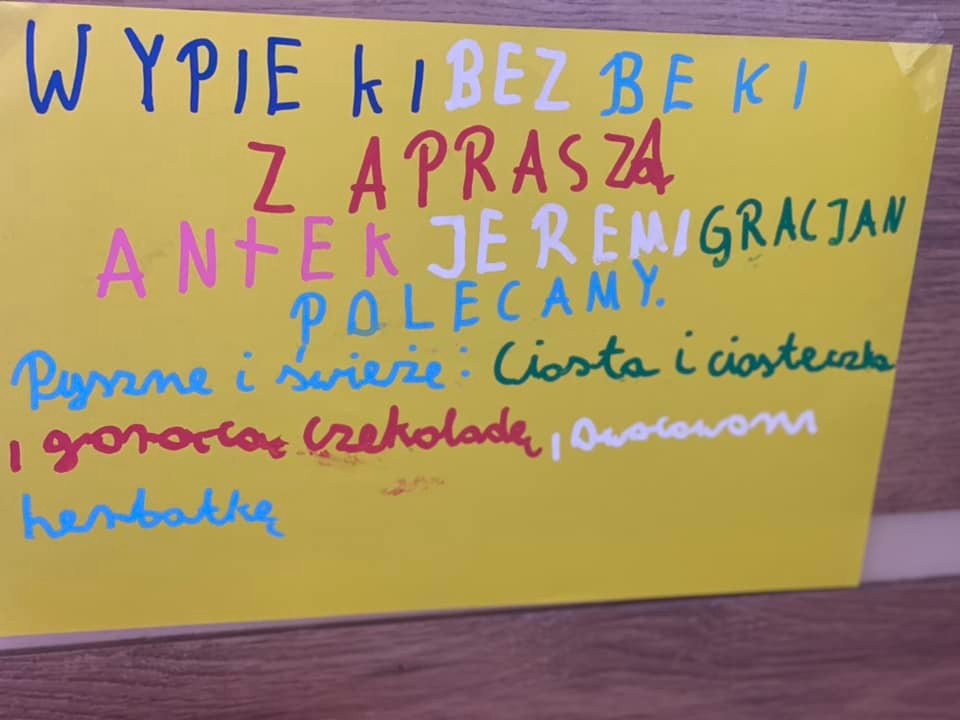 WYPIEKI BEZ BEKI
ZAPRASZĄ
ANTEK JEREMI GRACJAN
POLECAMY.
Pyszne i świeże: Ciasta i ciasteczka
i gorącą czekoladę, i owocowom
herbatkę